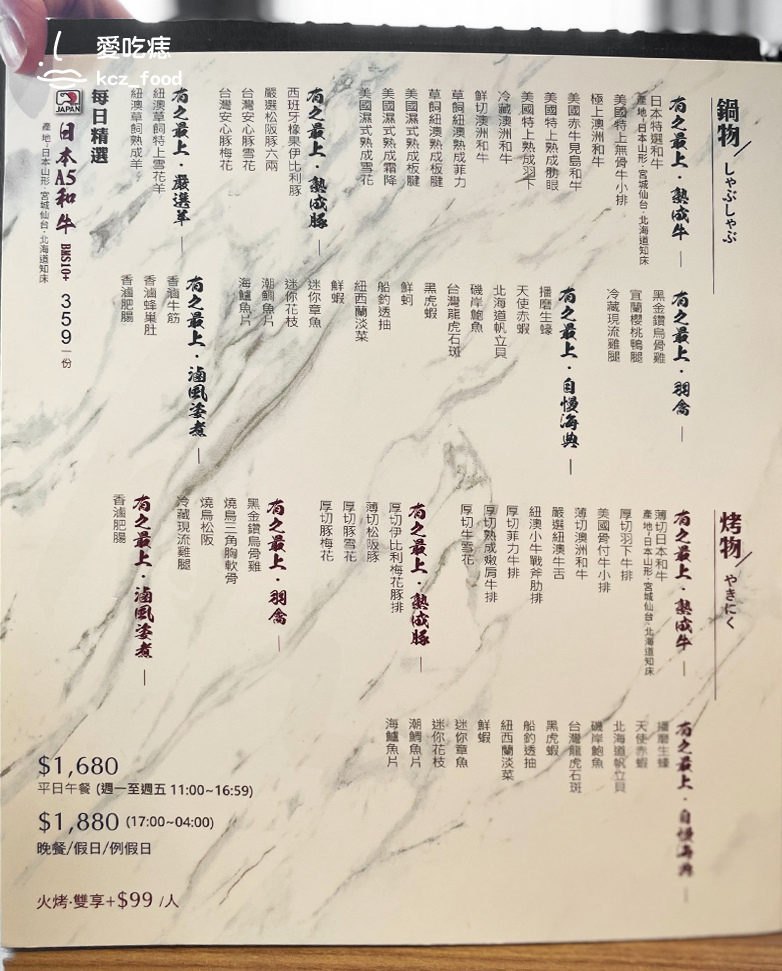 愛吃痣
kcz_food
鍋物 しゃぶしゃぶ
有之最上・熟成牛
日本特選和牛
產地・日本山形・宮城仙台・北海道知床
美國特上無骨牛小排
極上澳洲和牛
美國赤牛見島和牛
美國特上熟成肋眼
美國特上熟成羽下
冷藏澳洲和牛
鮮切澳洲和牛
草飼紐澳熟成菲力
草飼紐澳熟成板腱
美國濕式熟成板腱
美國濕式熟成霜降
美國濕式熟成雪花
有之最上・熟成豚
西班牙橡果伊比利豚
嚴選松阪豚六兩
台灣安心豚雪花
台灣安心豚梅花
有之最上・嚴選羊
紐澳草飼特上雪花羊
紐澳草飼熟成羊
有之最上・羽禽
黑金鑽烏骨雞
宜蘭櫻桃鴨腿
冷藏現流雞腿
有之最上・自慢海典
播磨生蠔
天使赤蝦
北海道帆立貝
磯岸鮑魚
台灣龍虎石斑
黑虎蝦
鮮蚵
船釣透抽
紐西蘭淡菜
鮮蝦
迷你章魚
迷你花枝
潮鯛魚片
海鱸魚片
有之最上・滷風姿煮
香滷牛筋
香滷蜂巢肚
香滷肥腸
每日精選
JAPAN
日本A5和牛 BMS10+ 359一份
產地・日本山形・宮城仙台・北海道知床
烤物 やきにく
有之最上・熟成牛
薄切日本和牛
產地・日本山形・宮城仙台・北海道知床
厚切羽下牛排
美國骨付牛小排
薄切澳洲和牛
嚴選紐澳牛舌
紐澳小牛戰斧肋排
厚切菲力牛排
厚切熟成嫩肩牛排
厚切牛雪花
有之最上・熟成豚
厚切伊比利梅花豚排
薄切松阪豚
厚切豚雪花
厚切豚梅花
有之最上・羽禽
黑金鑽烏骨雞
燒鳥三角胸軟骨
燒鳥松阪
冷藏現流雞腿
有之最上・滷風姿煮
香滷肥腸
有之最上・自慢海典
播磨生蠔
天使赤蝦
北海道帆立貝
磯岸鮑魚
台灣龍虎石斑
黑虎蝦
船釣透抽
紐西蘭淡菜
鮮蝦
迷你章魚
迷你花枝
潮鯛魚片
海鱸魚片
$1,680
平日午餐 (週一至週五 11:00~16:59)
$1,880 (17:00~04:00)
晚餐/假日/例假日
火烤・雙享+$99 /人